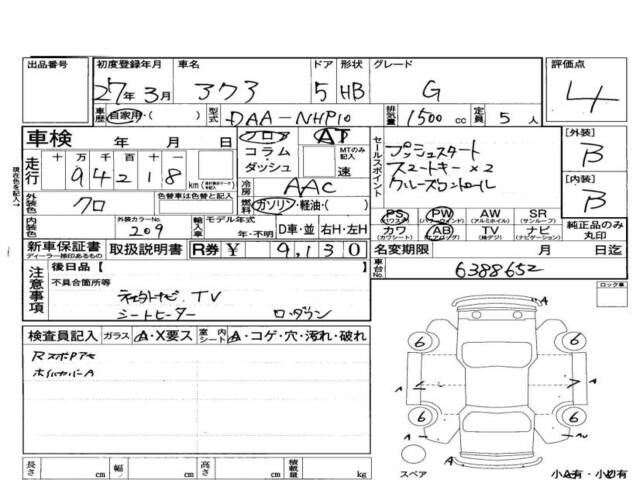 出品番号 初度登録年月 車名 ドア 形状 グレード 評価点
27年 3月 アクア 5 HB G 4
車歴 自家用・( ) 型式 DAA-NHP10 排気量 1500 cc 定員 5 人
車検 年 月 日 フロア AT セールスポイント [外装]
走行 十 万 千 百 十 一 コラム・ダッシュ MTのみ記入 速 プッシュスタート B
9 4 2 1 8 km スマートキー×2
冷房 AAC クルーズコントロール [内装]
外装色 クロ 色替車は色替と記入 燃料 ガソリン・軽油・( ) B
PS PW AW SR
(パワステ) (パワーウインド) (アルミホイル) (サンルーフ)
内装色 外装カラーNo. 209 輸入車 モデル年式 年・不明 D車・並 右H・左H カワ AB TV ナビ 純正品のみ丸印
(カワシート) (エアバック) (株デジ) (ナビゲーション)
新車保証書 取扱説明書 R券 ¥ 9,130 名変期限 月 日迄
ディーラー捺印あるもの
注意事項 後日品【 】 車台No. 6388652
不具合箇所等 ロック車
TV
シートヒーター
検査員記入 ガラス A・X要ス 室内シート A・コゲ・穴・汚れ・破れ
ホイルカバーA
A
6 6
A A
6 6
A
A
長さ cm 幅 cm 高さ cm 積載量 kg スペア 小A有・小U有
現在色を記入→